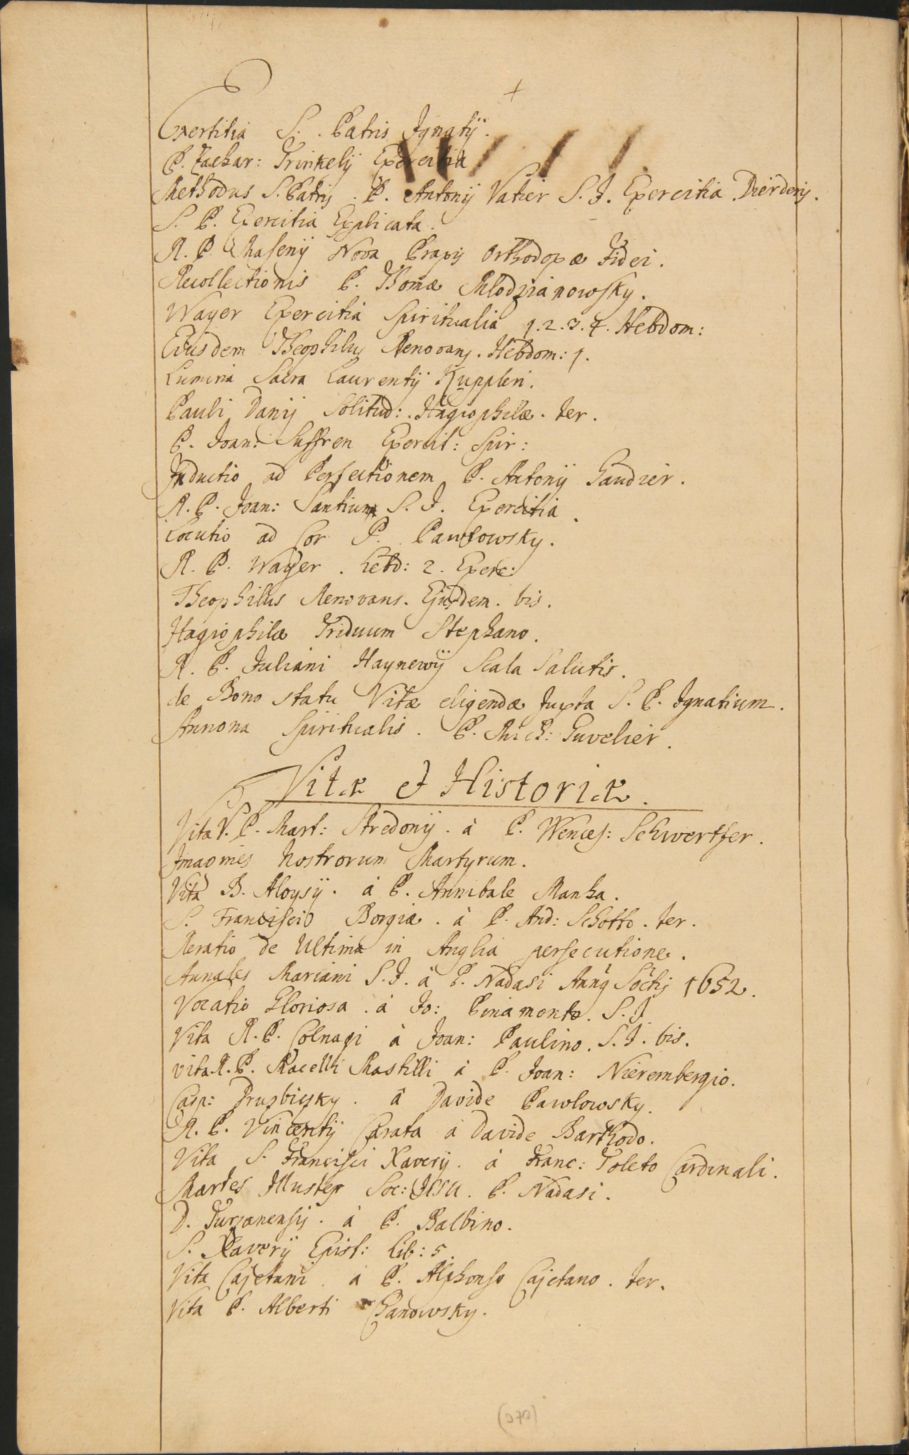 Exertitia S. Patris Ignatij.
P. Zachar: Trinkelij Exercitia
Methodus S. Patris. P. Antonij Vatier S. J. Exercitia
S. P. Exercitia Explicata.
R. P. Nova Praxis Orthodoxæ Fidei.
Recollectionis P. Thomæ Mlodzianowsky.
Wayer Exercitia Spiritualia 1. 2. 3. 4. Hebdom:
Eiusdem Theophilus Renovans. Hebdom: 1.
Lumina Sacra Laurentij Kuppleri.
Pauli Danij Solitud: Hagiophilæ. ter.
P. Joan: Suffren Exercit: Spir:
Inductio ad Perfectionem P. Antonij Gaudier.
R. P. Joan: S. J. Exercitia.
Locutio ad Cor P. Pawlowsky.
R. P. Wayer. Hebd: 2. Exerc:
Theophilus Renovans. Ejusdem. bis.
Hagiophilæ Triduum Stephano.
R. P. Juliani Haynewij Scala Salutis.
de Bono statu Vitæ eligendæ Juxta S. P. Ignatium.
Annona Spiritualis. P. Mich: Cuvelier.
Vitæ et Historiæ.
Vita V. P. Mart: Stredonij. à P. Wences: Schwertfer.
Imagines Nostrorum Martyrum.
Vita B. Aloysij. à P. Annibale Manka.
S. Francisci Borgiæ. à P. And: Schotto. ter.
Relatio de Ultima in Anglia persecutione.
Annales Mariani S. J. à P. Nadasi 1652.
Vocatio Gloriosa. à Jo: Pinamonte. S. J.
Vita R. P. Colnagi à Joan: Paulino. S. J. bis.
vita R. P. Macelli Mastilli à P. Joan: Nierembergio.
Casp: Druzbicsky. à Davide Pawlowsky.
R. P. Vincentij Carafa à Davide Barthodo.
Vita S. Francisci Xaverij. à Franc: Toleto Cardinali.
Mortes Illustes Soc: JEsu. P. Nadasi.
D. Turzanensis. à P. Balbino.
S. Xaverij Epist: Lib: 5.
Vita Cajetani à P. Alphonso Cajetano. ter.
Vita P. Alberti Chanowsky.
(270)